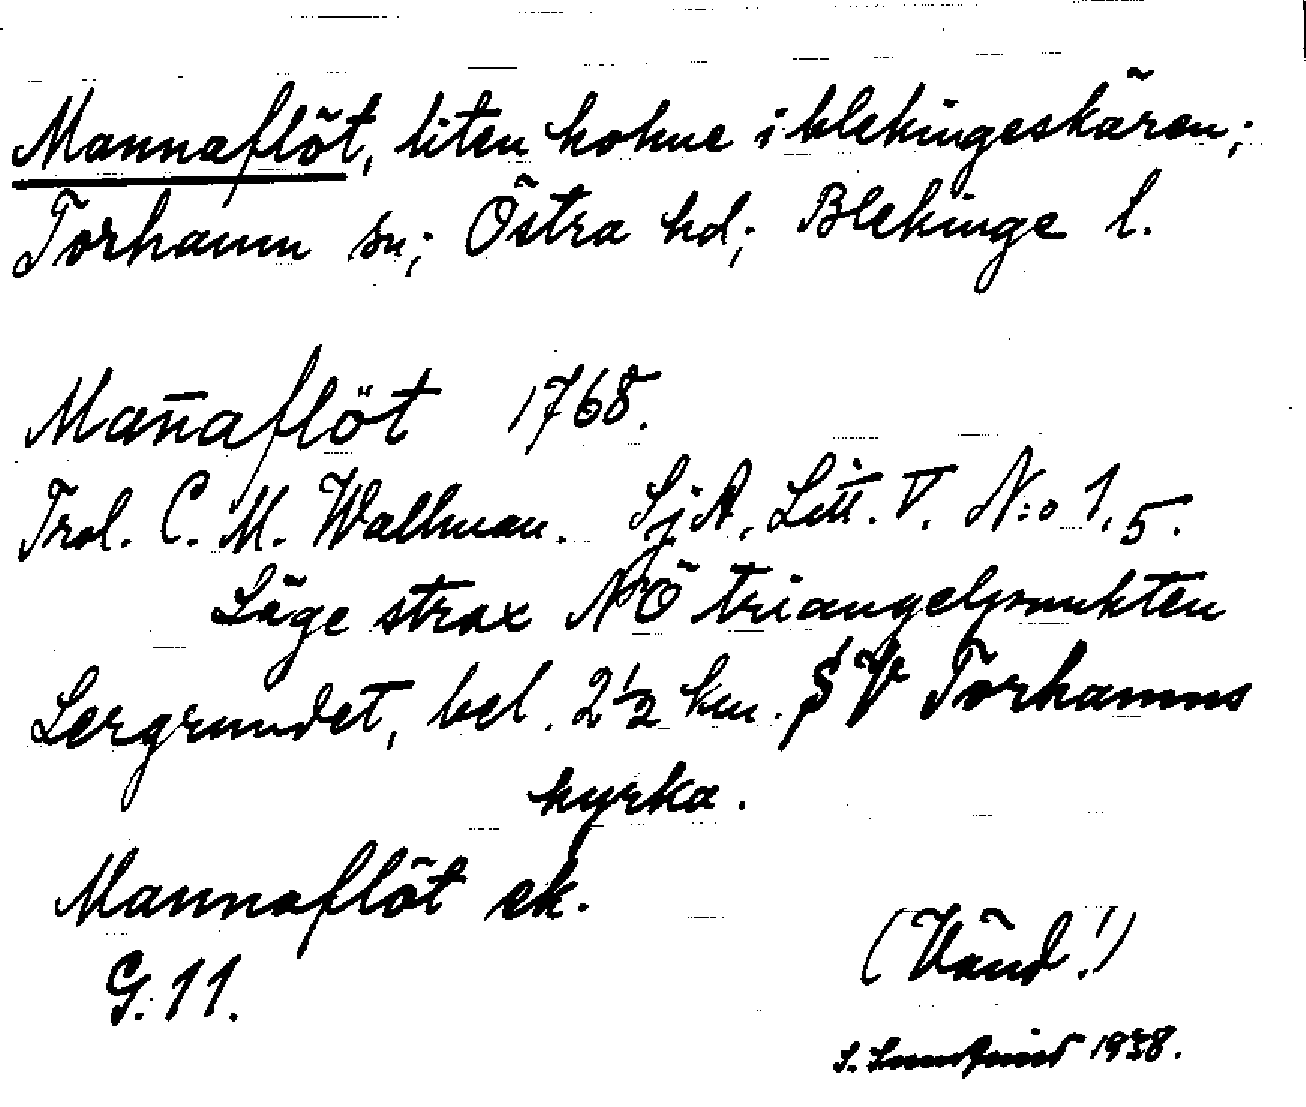 Mannaflöt, liten holme i blekingeskären;
Torhamn sn; Östra hd; Blekinge l.
Man̄aflöt 1768.
Trol. C. M. Wallman. SjA, Litt. V. N:o 1,5.
Läge strax NÖ triangelpunkten
Lergrundet, bel. 2½ km. SV Torhamns
kyrka.
Mannaflöt ek.
G. 11.
(Vänd!)
S. 1938.